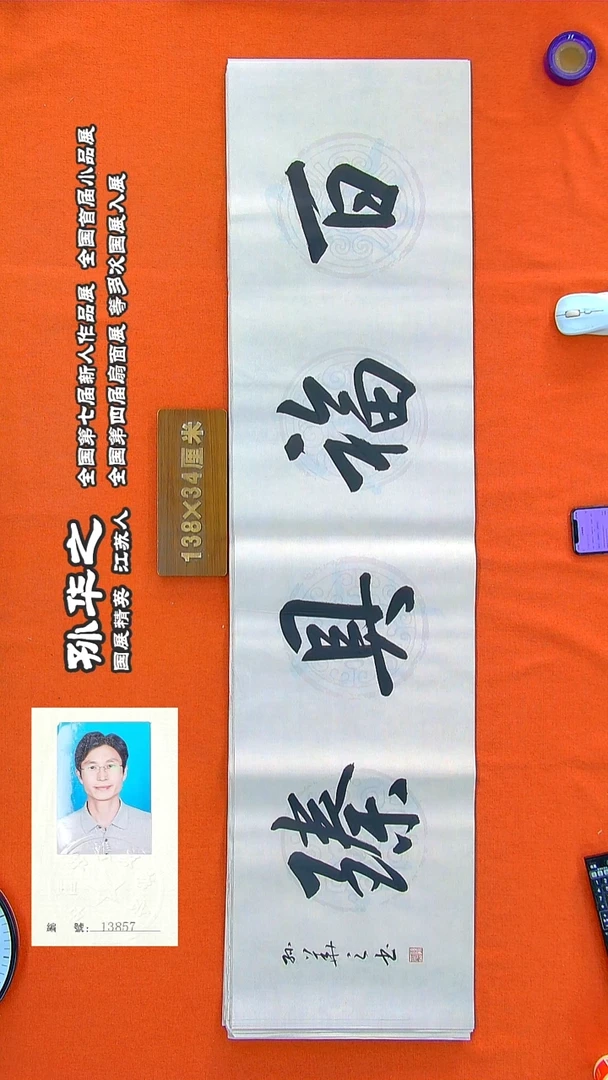 孙华之
国展精英 江苏人
全国第七届新人作品展 全国首届小品展
全国第四届扇面展 等多次国展入展
138×34厘米
百福具臻
孙華之书
編 號: 13857